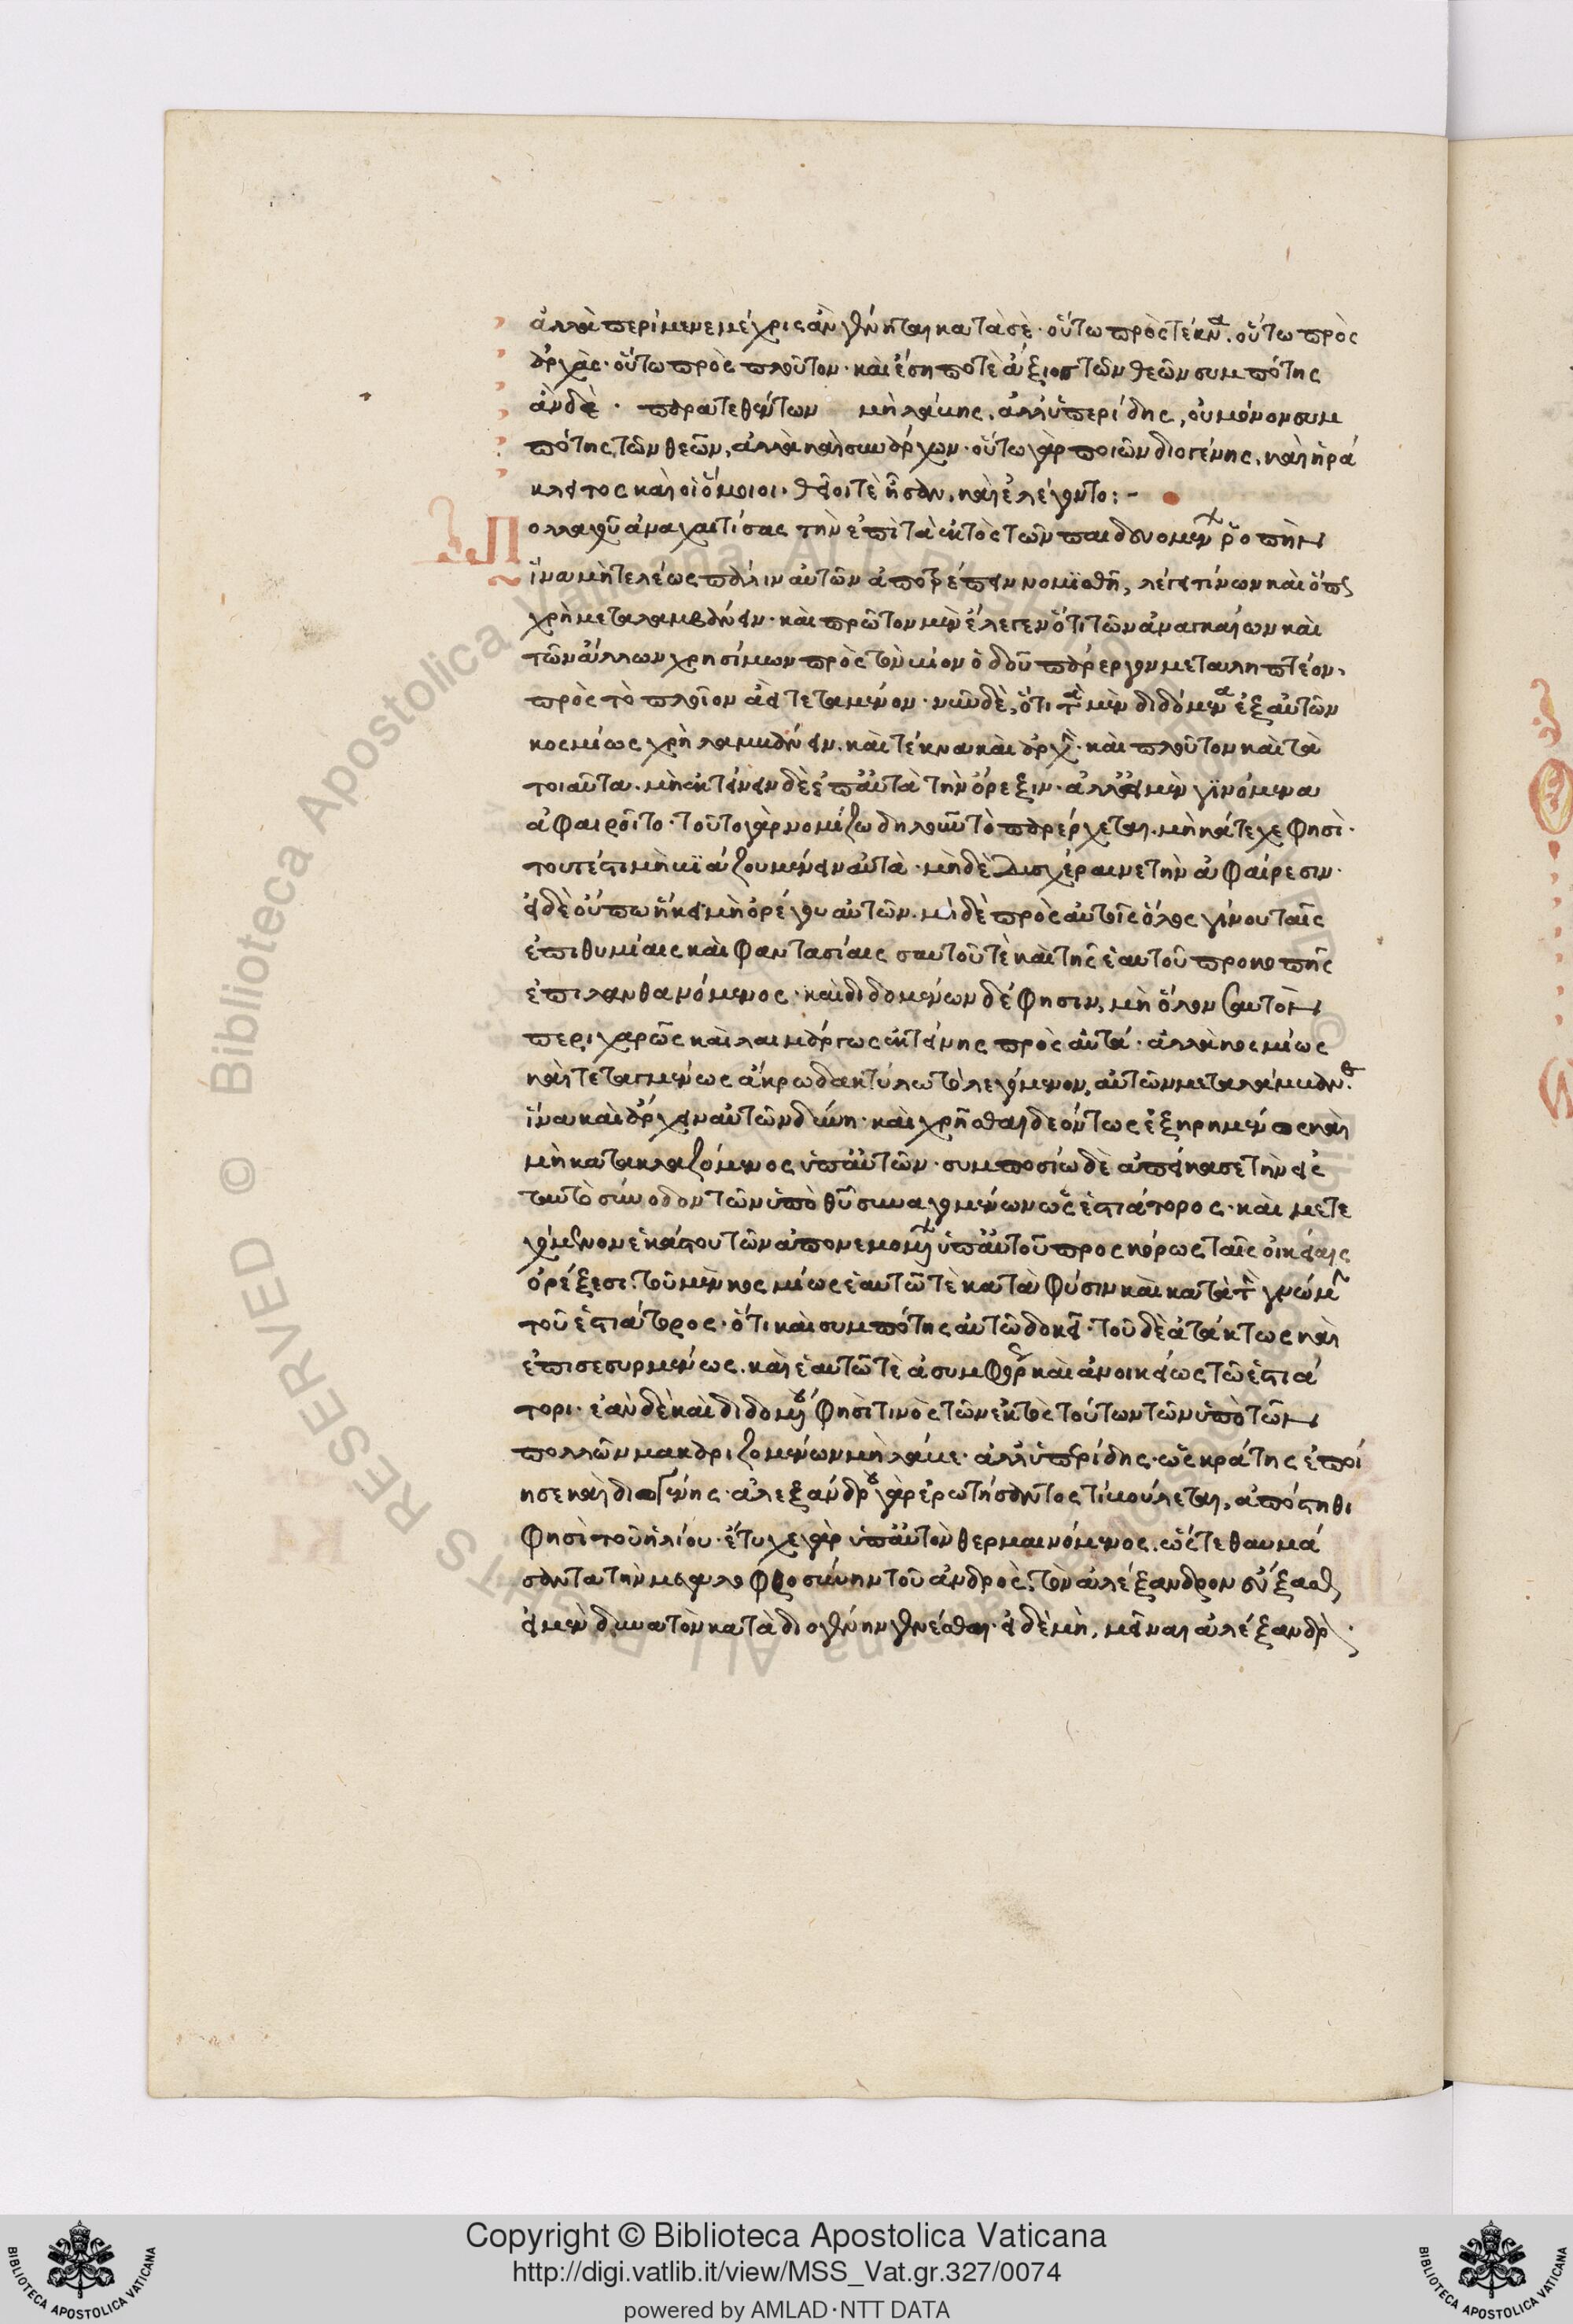 ἀλλὰ περίμενε μέχρις ἂν γένηται κατὰ σὲ· οὕτω πρὸς τέκνα. οὕτω πρὸς
ἀρχὰς· οὕτω πρὸς πλοῦτον· καὶ ἔσῃ ποτὲ ἄξιος τῶν θεῶν συμπότης
ἂν δὲ · παρατεθέντων μὴ λάβῃς, ἀλλ' ὑπερίδῃς, οὐ μόνον συμ
πότης τῶν θεῶν, ἀλλὰ καὶ συνάρχων· οὕτω γὰρ ποιῶν διογένης, καὶ ἡρά
κλειτος καὶ οἱ ὅμοιοι· θεῖοί τε ἦσαν, καὶ ἐλέγοντο:-
Πολλαχοῦ ἀναχαιτίσας τὴν ἐπὶ τὰ ἐκτὸς τῶν παιδευομένων ῥοπὴν
ἵνα μὴ τελέως πάλιν αὐτῶν ἀποτρέπειν νομισθῇ, λέγει τίνων καὶ ὅπως
χρὴ μεταλαμβάνειν· καὶ πρῶτον μὲν ἔλεγεν ὅτι τῶν ἀναγκαίων καὶ
τῶν ἄλλων χρησίμων πρὸς τὸν βίον ὁδοῦ πάρεργον μεταληπτέον,
πρὸς τὸ πλοῖον ἀεὶ τεταμένον· νῦν δὲ, ὅτι τὰ μὲν διδόμενα ἐξ αὐτῶν
κοσμίως χρὴ λαμβάνειν. καὶ τέκνα καὶ ἀρχὴν· καὶ πλοῦτον καὶ τὰ
τοιαῦτα. μὴ ἐκτείνειν δὲ ἐπ' αὐτὰ τὴν ὄρεξιν· ἀλλ' εἰ μὲν γινόμενα
ἀφαιροῖτο· τοῦτο γὰρ νομίζω δηλοῦν τὸ παρέρχεται. μὴ κάτεχε φησὶ·
τουτέστι μὴ βιάζου μένειν αὐτὰ· μηδὲ δυσχέραινε τὴν ἀφαίρεσιν·
εἰ δὲ οὔπω ἥκει μὴ ὀρέγου αὐτῶν. μηδὲ πρὸς αὐτοῖς ὅλος γίνου ταῖς
ἐπιθυμίαις καὶ φαντασίαις σαυτοῦ τὲ καὶ τῆς ἑαυτοῦ προκοπῆς
ἐπιλανθανόμενος· καὶ διδομένων δέ φησιν, μὴ ὅλον σαυτὸν
περιχαρῶς καὶ λαιμάργως ἐκτείνῃς πρὸς αὐτά· ἀλλὰ κοσμίως
καὶ τεταγμένως ἀκρωδακτύλω τὸ λεγόμενον, αὐτῶν μεταλάμβανε.
ἵνα καὶ ἄρχειν αὐτῶν δύνῃ· καὶ χρῆσθαι δεόντως ἐξῃρημένος καὶ
μὴ κατακλαζόμενος ὑπ' αὐτῶν· συμποσίω δὲ ἀπείκασε τὴν εἰς
ταυτὸ σύνοδον τῶν ὑπὸ θεοῦ συναγομένων ὡς ἑστιάτορος· καὶ μετε
χόμενον ἑκάστου τῶν ἀπονεμομένων ὑπ' αὐτοῦ προσκόρως ταῖς οἰκείαις
ὀρέξεσι. τοῦ μὲν κοσμίως ἑαυτῶ τὲ κατὰ φύσιν καὶ κατὰ τὴν γνώμην
τοῦ ἑστιάτορος· ὅτι καὶ συμπότης αὐτῶ δοκεῖ· τοῦ δὲ ἀτάκτως καὶ
ἐπισεσυρμένως. καὶ ἑαυτῶ τὲ ἀσυμφόρως καὶ ἀνοικείως τῶ ἑστιά
τορι· ἐὰν δὲ καὶ διδομένου φησὶ τινὸς τῶν ἐκτὸς τούτων τῶν ὑπὸ τῶν
πολλῶν μακαριζομένων μὴ λάβε· ἀλλ' ὑπερίδῃς· ὡς κράτης ἐποί
ησε καὶ διογένης· ἀλεξάνδρου γὰρ ἐρωτήσαντος τί βούλεται, ἀπόστηθι
φησὶ τοῦ ἡλίου· ἔτυχε γὰρ ὑπ' αὐτὸν θερμαινόμενος. ὥστε θαυμά
σαντα τὴν μεγαλοφροσύνην τοῦ ἀνδρὸς. τὸν ἀλέξανδρον εὔξασθαι
εἰ μὲν δυνατὸν κατὰ διογένην γενέσθαι· εἰ δὲ μὴ, μεῖναι ἀλέξανδρον·
Copyright © Biblioteca Apostolica Vaticana
http://digi.vatlib.it/view/MSS_Vat.gr.327/0074
powered by AMLAD·NTT DATA